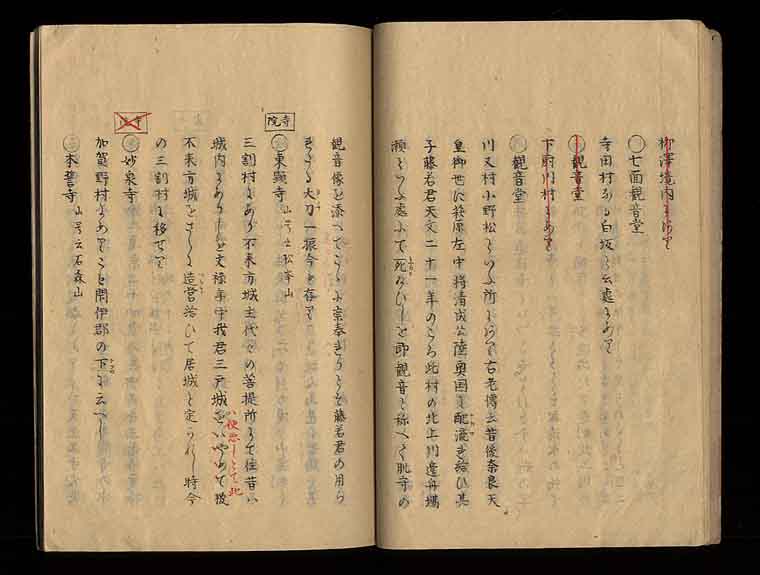 柳澤境内にあり
〇七面観音堂
寺田村なる白坂と云處にあり
〇観音堂
下斗内村にあり
〇観音堂
川又村小野松といふ所にあり古老傳云昔後奈良天
皇御世に萩原左中将清成公陸奥国に配流され給ひ其
子藤若君天文二十一年のころ此村の北上川邊舟場
瀬といふ處にて死なむひしを即観音と称へて此寺の
観音像を添へてこゝに奉りそも藤若君の用ら
れたる大刀一振今に存り
寺院
〇東顕寺 山号云松峯山
三割村にあり不来方城主代々の菩提所にて往昔ハ
城内にありしを文禄年中我君三戸城をいやめて彼
ハ便悪しとて此
不来方城をさらに造営給ひて居城と定られし時今
の三割村に移せり
寺院
〇妙泉寺
加賀野村にありこと閉伊郡の下に云へし
〇本誓寺 山号云石森山